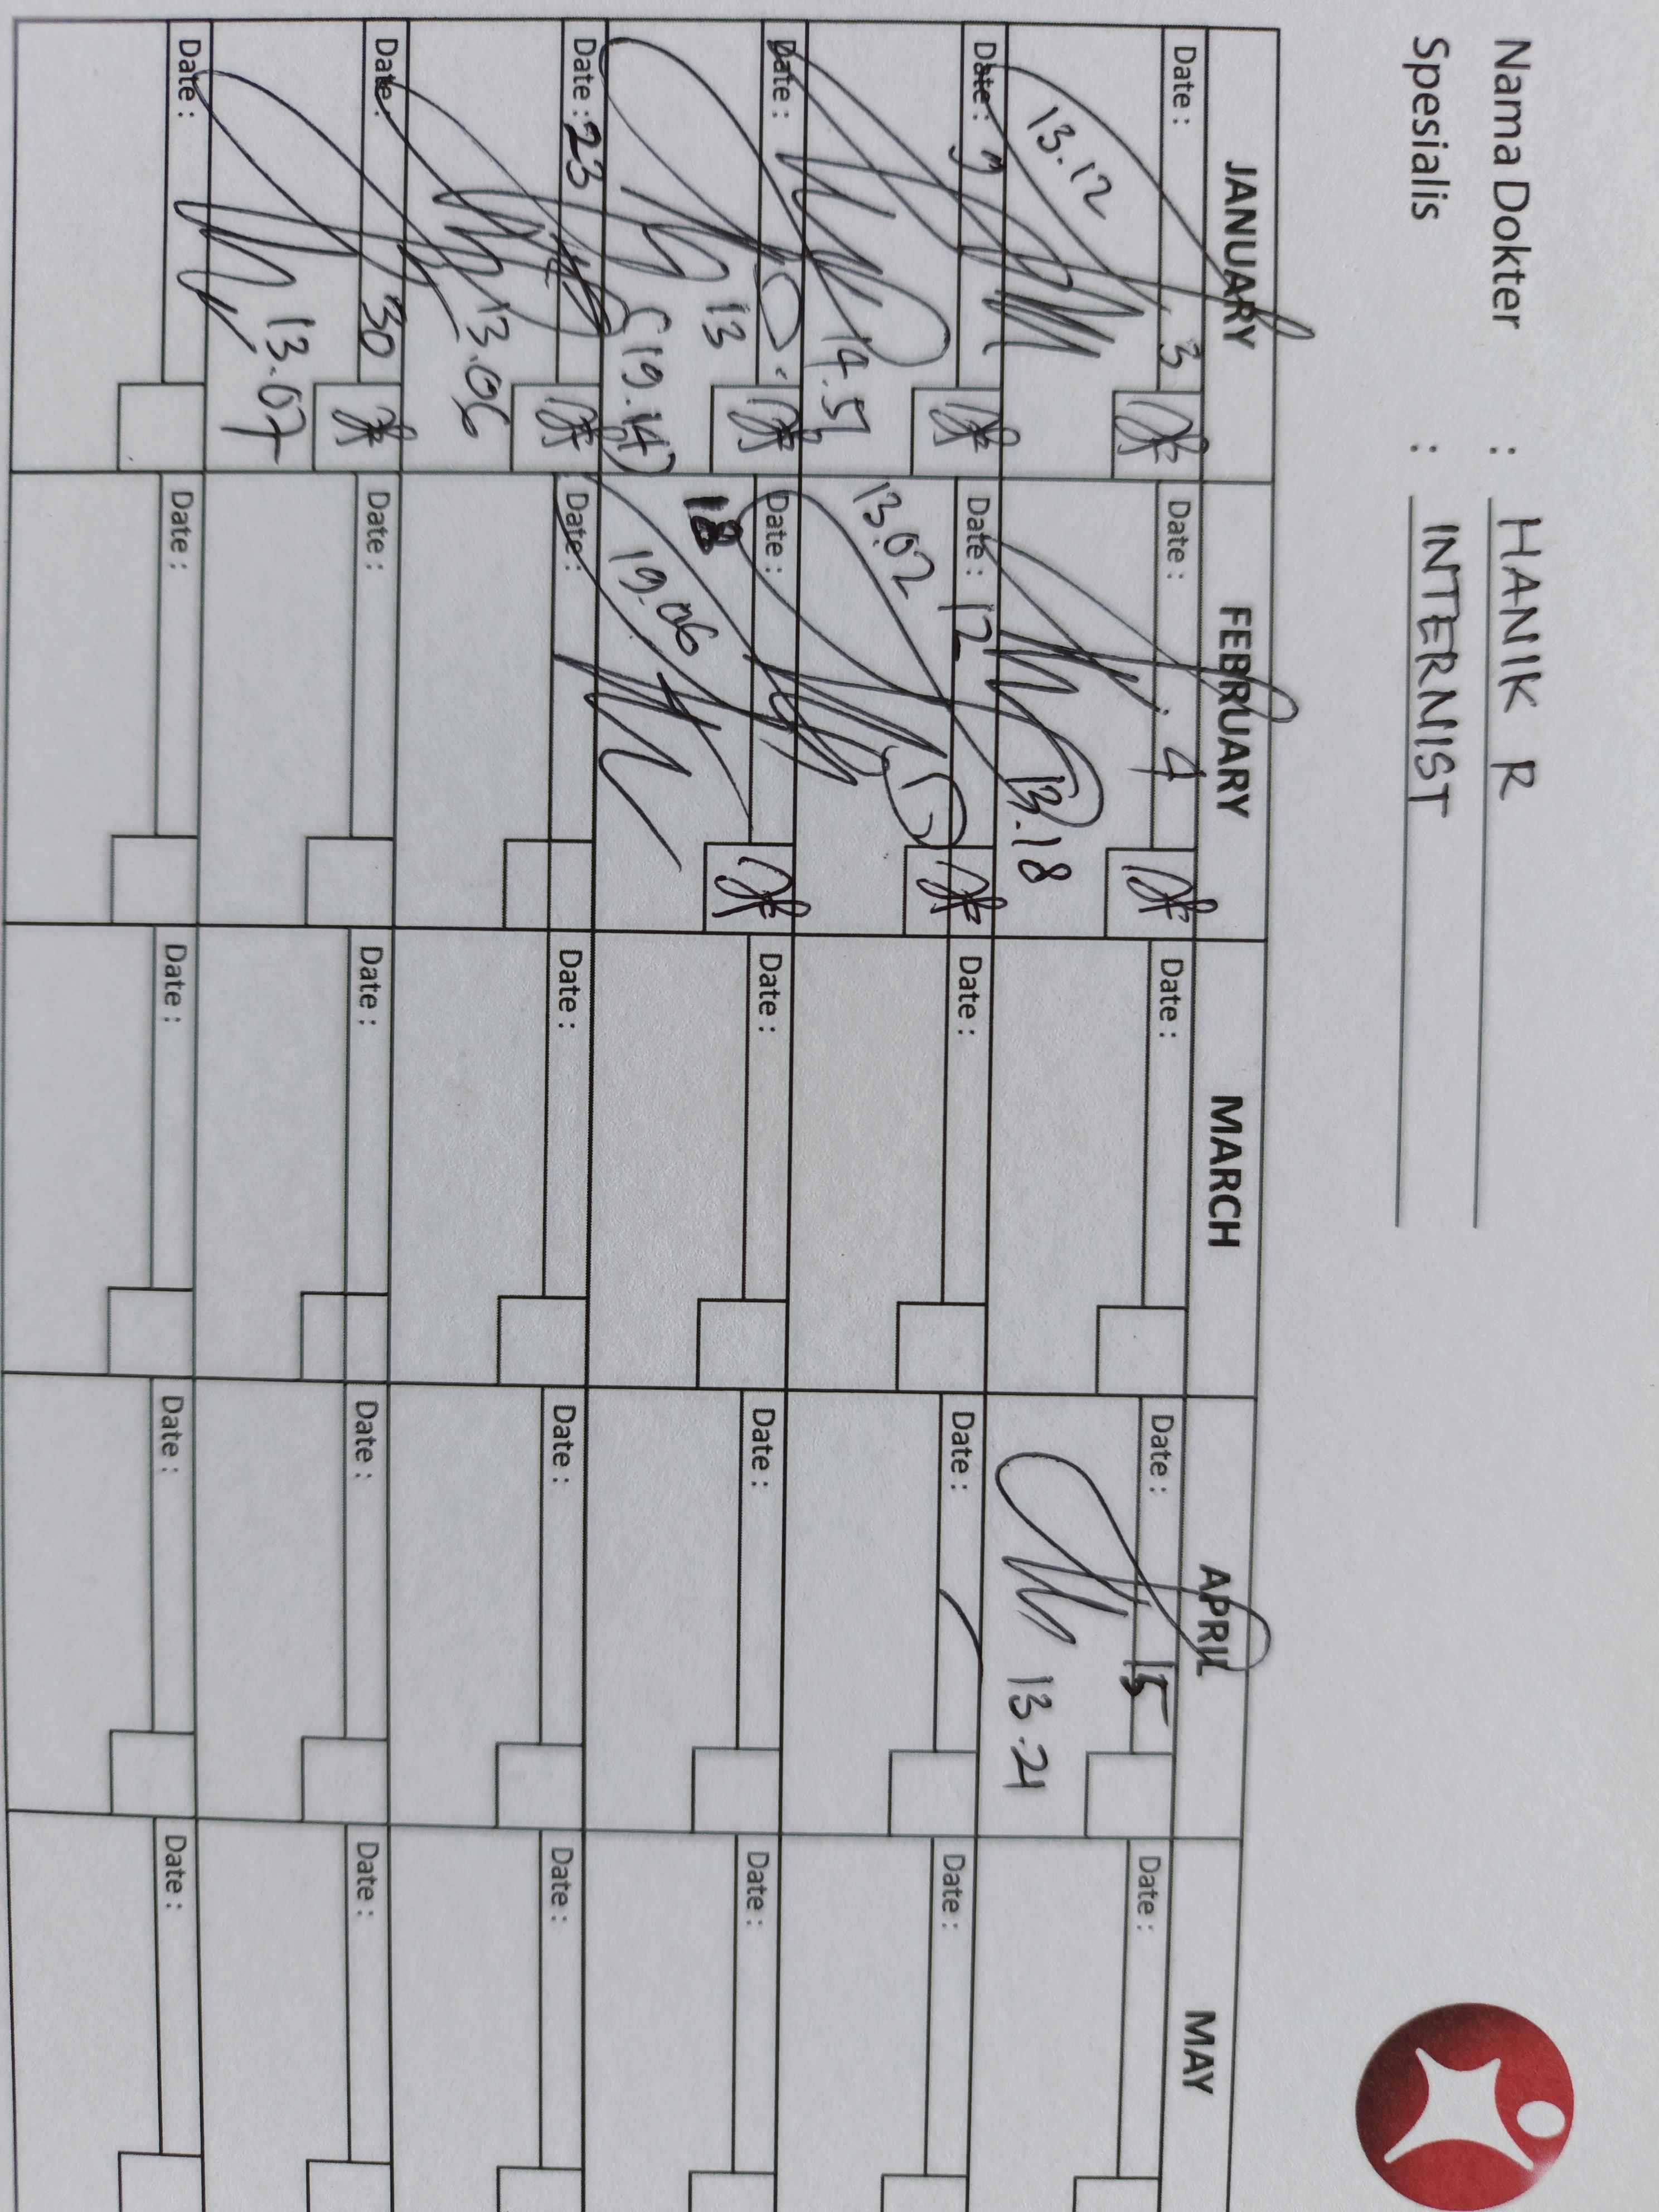 Nama Dokter : HANIK R
Spesialis : INTERNIST
JANUARY FEBRUARY MARCH APRIL MAY
Date : 3 Date : 4 Date : Date : 15 Date :
13.12 13.18 13.21
Date : 9 Date : 12 Date : Date : Date :
14.51 13.02
Date : Date : 18 Date : Date : Date :
13 (19.14) 19.06
Date : 23 Date : Date : Date : Date :
13.06
Date : 30 Date : Date : Date : Date :
13.07
Date : Date : Date : Date : Date :